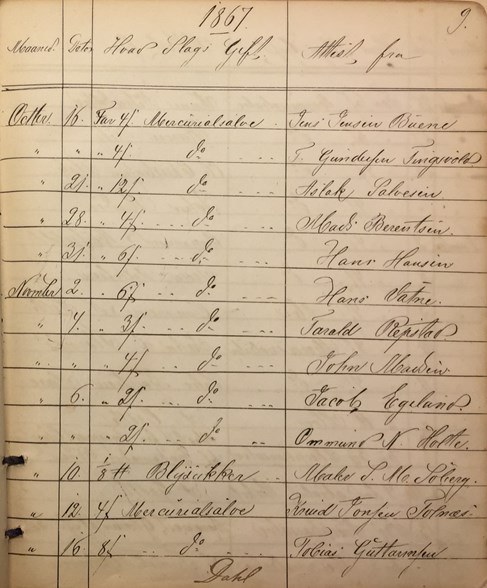 1867. 9.
Maaned. Dato Hvad Slags Gift. Attest fra
Octbr 16. For 4ſ Mercurialsalve. Jens Jensen Buene
" " " 4ſ. do T. Gundersen Tingvold.
" 21. " 12ſ. do Aslak Salvesen
" 28. " 4ſ. do Mads Berentsen.
" 31. " 6ſ. do Hans Hansen
Novmbr 2. " 6ſ. do Hans Vatne.
" 4. " 3ſ. do Tarald Repstad
" " " 4ſ. do John Madsen
" 6. " 2ſ. do Jacob Egeland.
" " " 2ſ. do Ommund N. Holte.
" 10. ½ ℔ Blysukker Soberg.
" 12. 4ſ Mercurialsalve Knud Jonsen
" 16 8ſ do Tobias Guttormsen
Dahl